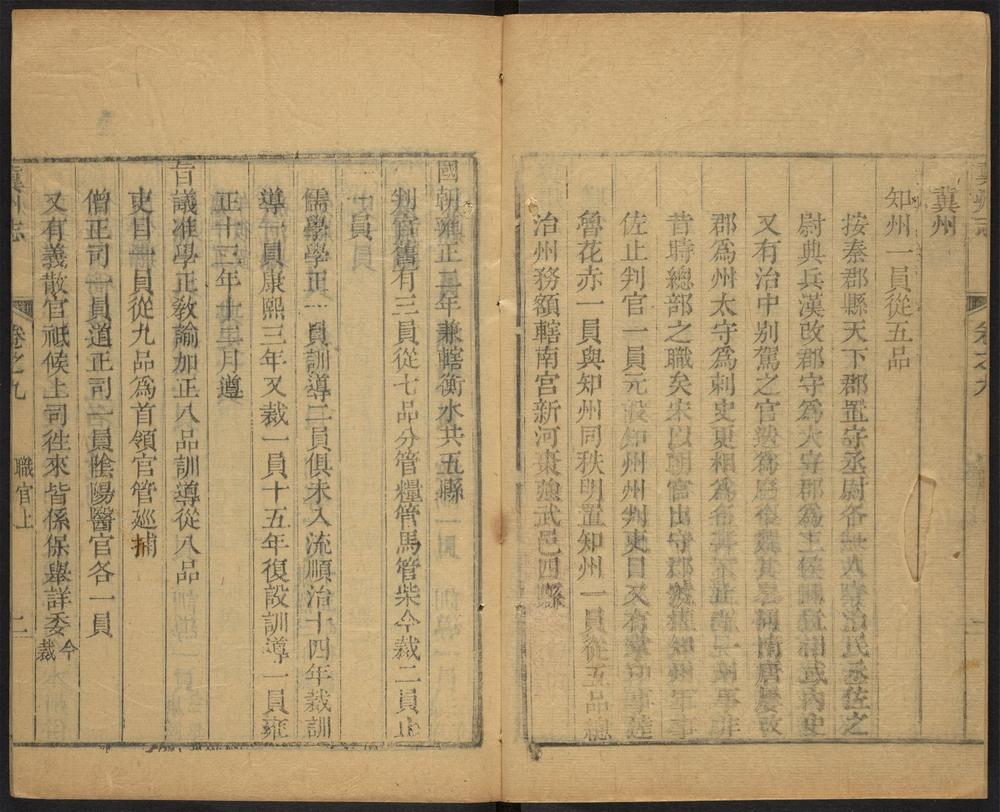 冀州
知州一員從五品
按秦郡縣天下郡置守丞尉各一人守治民丞佐之
尉典兵漢改郡守為太守郡為王侯國置相或內史
又有治中别駕之官
郡為州太守為刺史更相為
昔時總部之職矣宋以朝官出守郡號權知州軍事
佐止判官一員元設知州州判吏目又有掌印事達
魯花赤一員與知州同秩明置知州一員從五品總
治州務額轄南宫新河棗强武邑四縣
國朝雍正三年兼轄衡水共五縣
判官舊有三員從七品分管糧管馬管柴今裁二員止
一員
儒學學正一員訓導三員俱未入流順治十四年裁訓
導一員康熙三年又裁一員十五年復設訓導一員雍
正十三年十二月遵
旨議准學正教諭加正八品訓導從八品
吏目一員從九品為首領官管廵捕
僧正司一員道正司一員陰陽醫官各一員
又有義散官祗候上司徃來皆係保舉詳委今裁
冀州志
卷之九
職官上
二